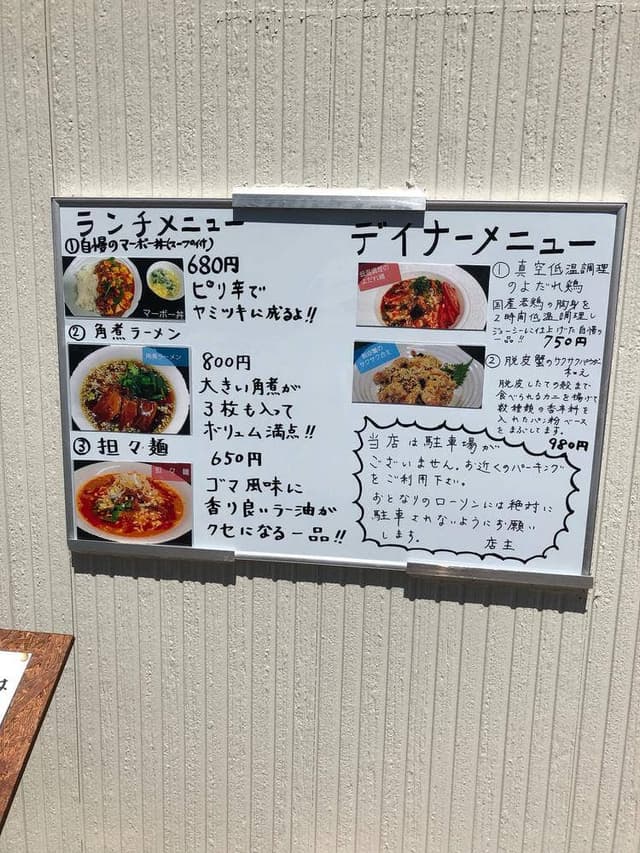 ランチメニュー
①自慢のマーボー丼(スープ付)
680円
ピリ辛で
ヤミツキに成るよ!!
マーボー丼
②角煮ラーメン
角煮ラーメン
800円
大きい角煮が
3枚も入って
ボリュム満点!!
③担々麺
担々麺
650円
ゴマ風味に
香り良いラー油が
クセになる一品!!
ディナーメニュー
①真空低温調理
のよだれ鶏
低温調理の
よだれ鶏
国産若鶏の胸身を
2時間低温調理し
ジューシーに仕上げた自慢の
一品!!
750円
②脱皮蟹のサクサクパウダー
和え
脱皮蟹の
サクサクカニ
脱皮したての殻まで
食べられるカニを揚げて
数種類の香辛料を
入れたパン粉ベース
をまぶしてます。
980円
当店は駐車場が
ございません。お近くのパーキング
をご利用下さい。
おとなりのローソンには絶対に
駐車されないようにお願い
します。
店主
は